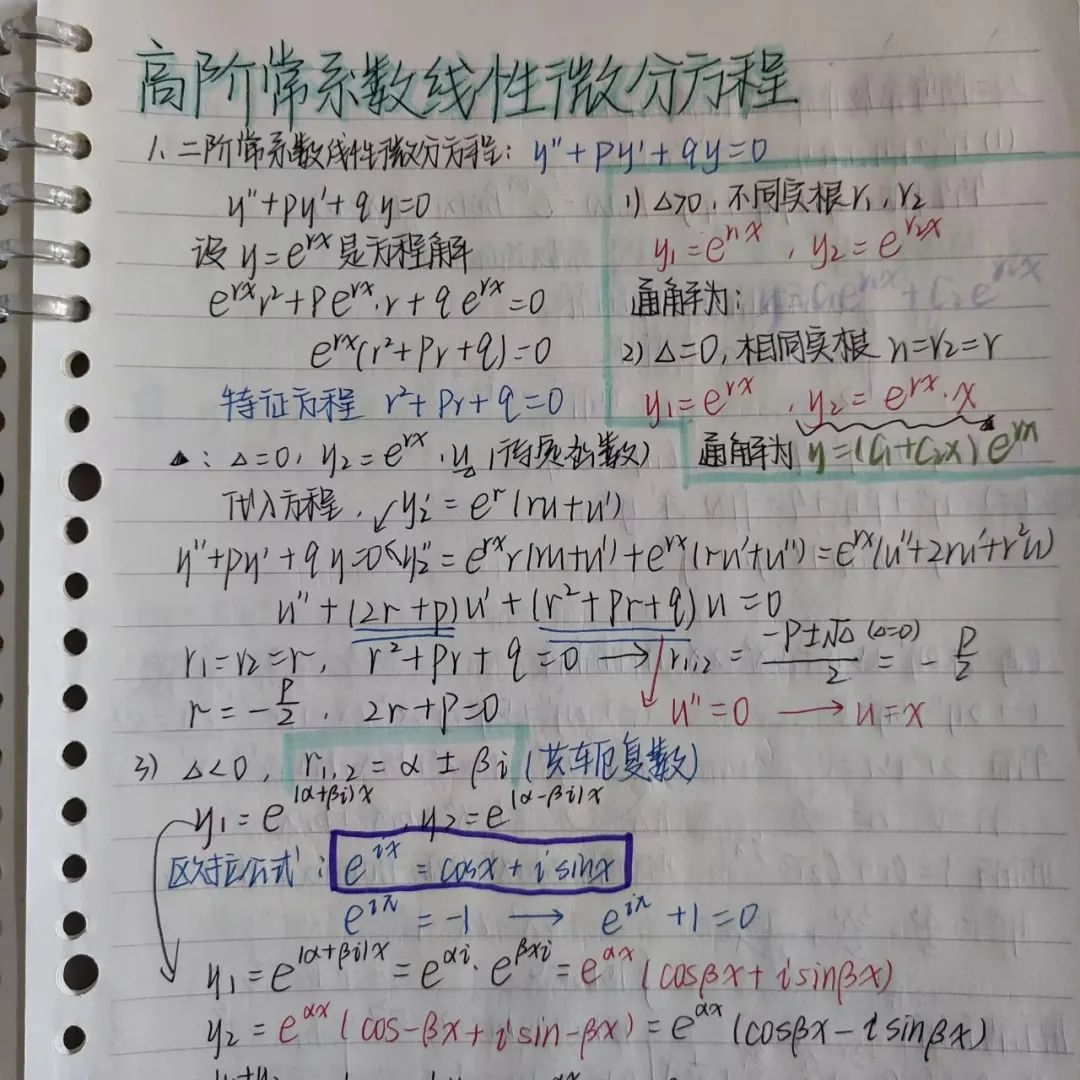 高阶常系数线性微分方程
1、二阶常系数线性微分方程: y″+py′+qy=0
y″+py′+qy=0
设 y=e^{rx} 是方程解
e^{rx}r²+Pe^{rx}·r+qe^{rx}=0
e^{rx}(r²+Pr+q)=0
特征方程 r²+Pr+q=0
1) Δ>0, 不同实根 r₁, r₂
y₁=e^{r₁x}, y₂=e^{r₂x}
通解为: y=C₁e^{r₁x}+C₂e^{r₂x}
2) Δ=0, 相同实根 r₁=r₂=r
y₁=e^{rx}, y₂=e^{rx}·x
通解为 y=(C₁+C₂x)e^{rx}
▲: Δ=0, y₂=e^{rx}·u (待定函数)
代入方程, y₂′=e^r(ru+u′)
y″+py′+qy=0 y₂″=e^{rx}r(ru+u′)+e^{rx}(ru′+u″)=e^{rx}(u″+2ru′+r²u)
u″+(2r+p)u′+(r²+pr+q)u=0
r₁=r₂=r, r²+pr+q=0 → r₁,₂=(-P±√Δ)/2 (Δ=0) =-P/2
r=-P/2, 2r+p=0 u″=0 → u=x
3) Δ<0, r₁,₂=α±βi (共轭复数)
y₁=e^{(α+βi)x}, y₂=e^{(α-βi)x}
欧拉公式: e^{ix}=cosx+isinx
e^{iπ}=-1 → e^{iπ}+1=0
y₁=e^{(α+βi)x}=e^{αi}·e^{βxi}=e^{αx}(cosβx+isinβx)
y₂=e^{αx}(cos-βx+isin-βx)=e^{αx}(cosβx-isinβx)